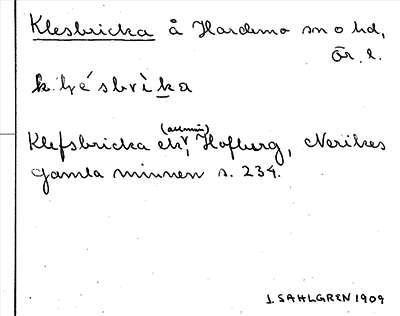 Klesbricka å Hardemo sn o hd,
Ör. l.
k lʹesbrìka
Klefsbricka etc, Hofberg, Nerikes
gamla minnen s. 234.
J. SAHLGREN 1909